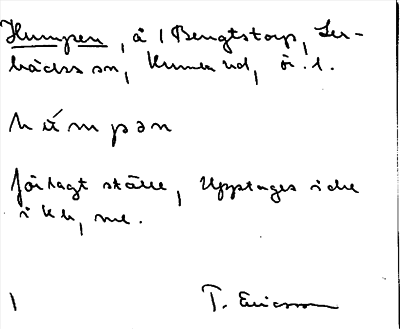 Humpen, å i Bengtstorp, Ler-
bäcks sn, Kumla hd, ör. l.
húmpən
förlagt ställe, upptages icke
i Kb, me.
1 T. Ericsson